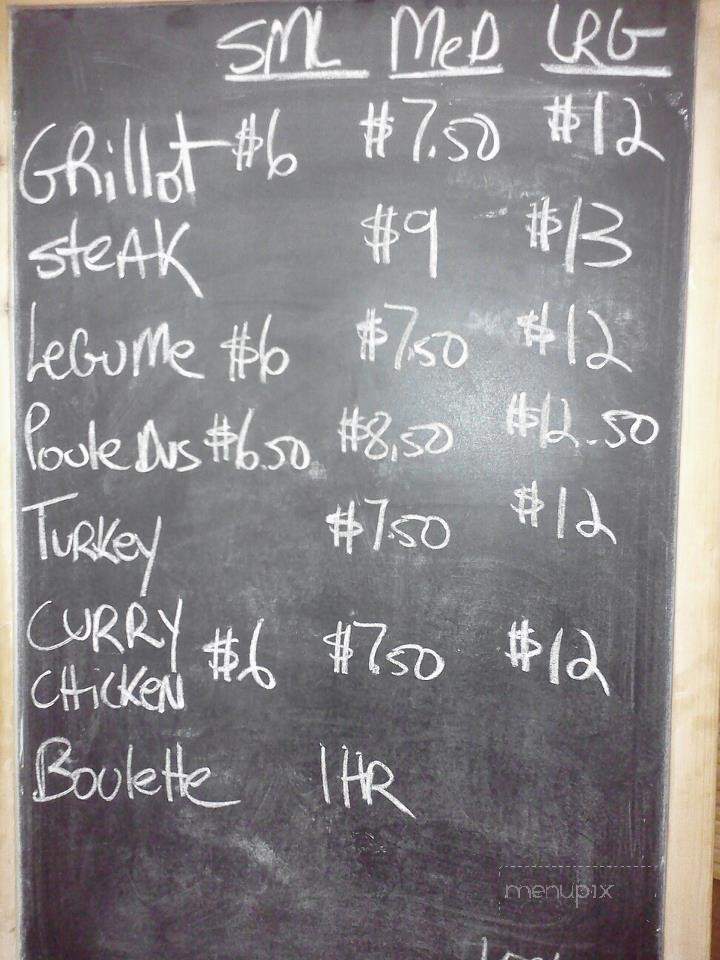 SML MeD LRG
GRillot $6 $7.50 $12
steAK $9 $13
LeGuMe $6 $7.50 $12
Poule DNS $6.50 $8.50 $12.50
TuRKey $7.50 $12
CURRY CHicKeN $6 $7.50 $12
Boulette 1HR
menupix